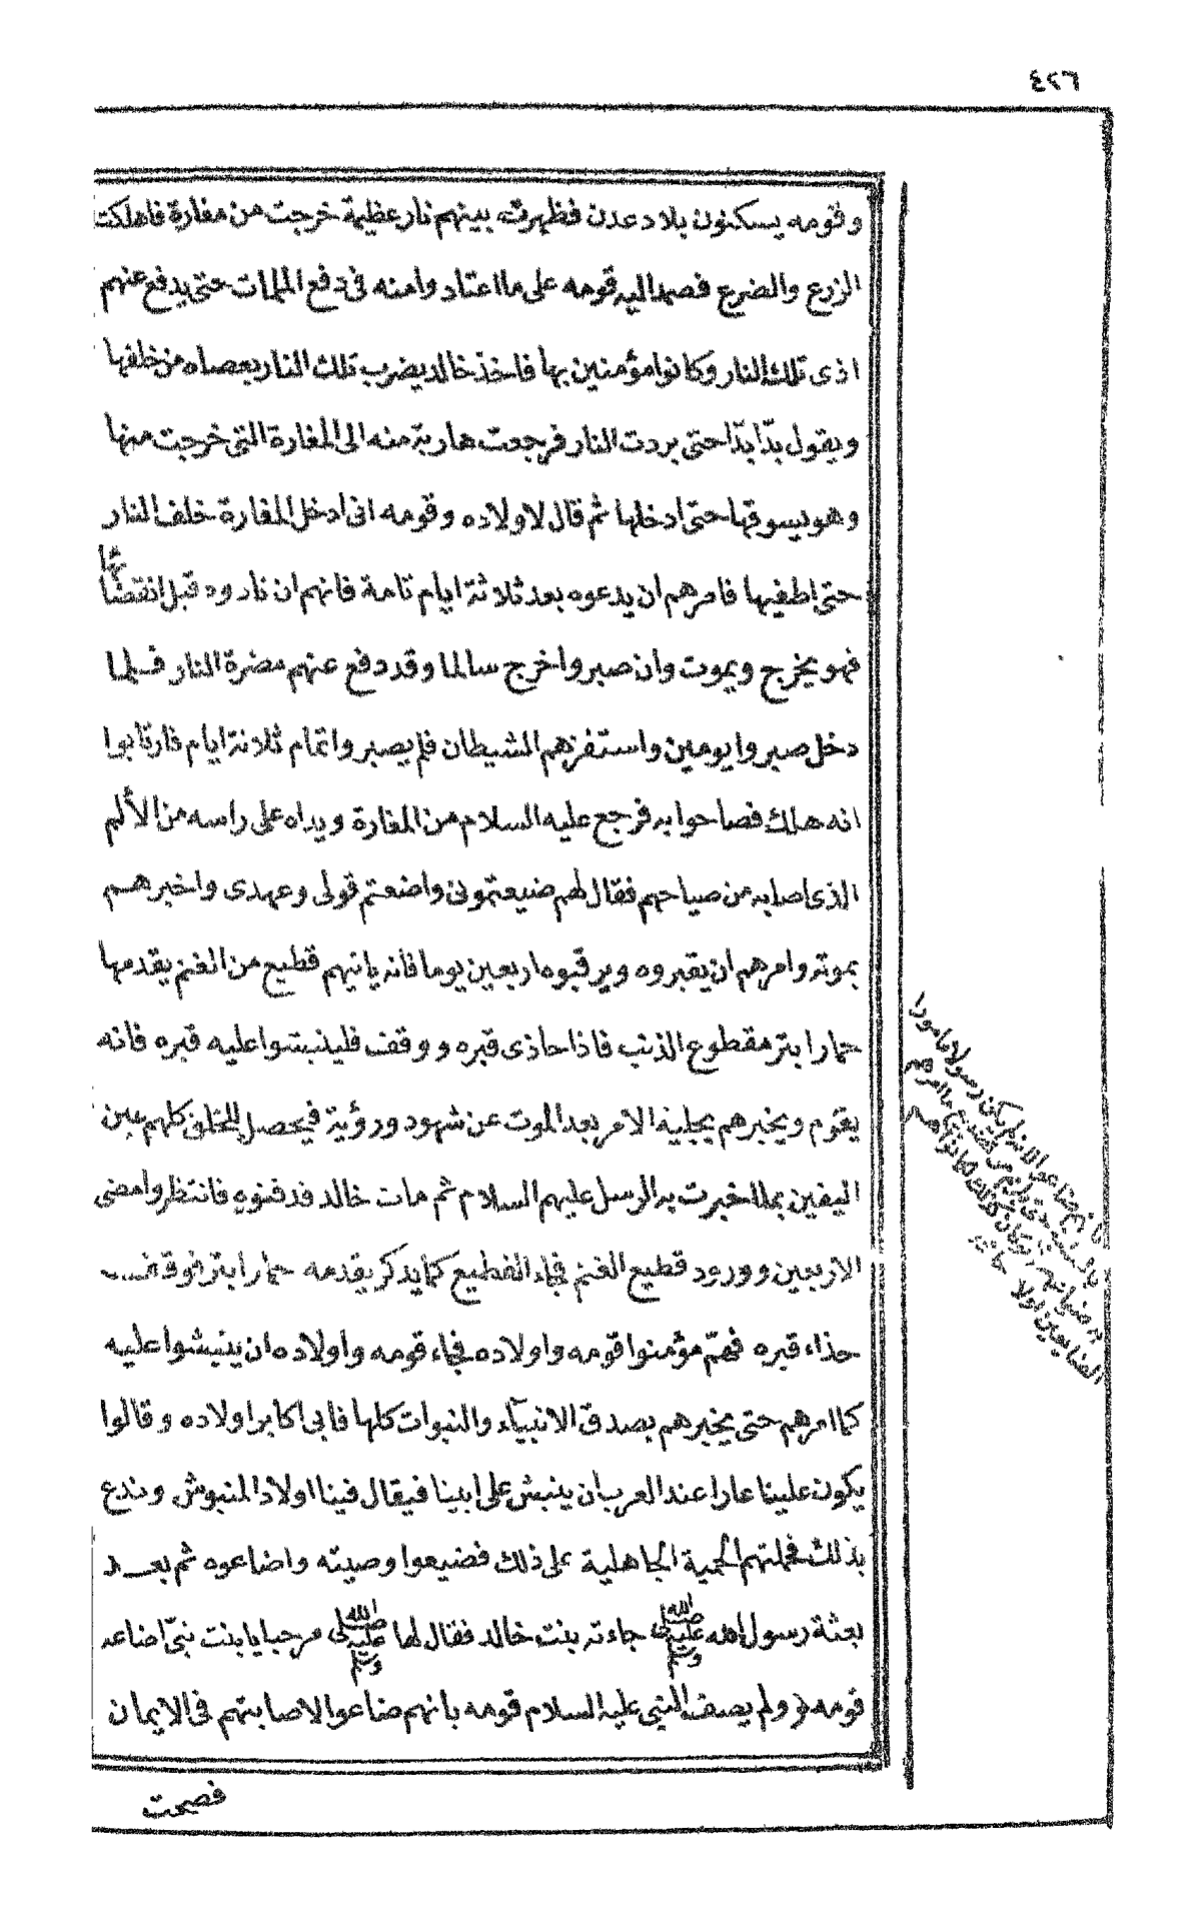 ٤٢٦
وقومه يسكنون بلاد عدن فظهرت بينهم نار عظيمة خرجت من مغارة فاهلكت
الزرع والضرع فصمد اليه قومه على ما اعتاد وامنه فى دفع الملمات حتى يدفع عنهم
اذى تلك النار وكانوا مؤمنين بها فاخذ خالد يضرب تلك النار بعصاه من خلفها
ويقول بدّا بدّا حتى بردت النار فرجعت هاربة منه الى المغارة التى خرجت منها
وهو يسوقها حتى ادخلها ثم قال لاولاده وقومه انى ادخل المغارة خلف النار
حتى اطفيها فامرهم ان يدعوه بعد ثلاثة ايام تامة فانهم ان نادوه قبل انقضائها
فهو يخرج ويموت وان صبروا خرج سالما وقد دفع عنهم مضرة النار فلما
دخل صبروا يومين واستفزهم الشيطان فلم يصبروا تمام ثلاثة ايام فارتابوا
انه هلك فصاحوا به فرجع عليه السلام من المغارة ويداه على راسه من الألم
الذى اصابه من صياحهم فقال لهم ضيعتمونى واضعتم قولى وعهدى واخبرهم
بموته وامرهم ان يقبروه ويرقبوه اربعين يوما فانه ياتيهم قطيع من الغنم يقدمها
حمار ابتر مقطوع الذنب فاذا حاذى قبره ووقف فلينبشوا عليه قبره فانه
يقوم ويخبرهم بجلية الامر بعد الموت عن شهود ورؤية فيحصل للخلق كلهم عين
اليقين بما اخبرت به الرسل عليهم السلام ثم مات خالد فدفنوه فانتظروا مضى
الاربعين وورود قطيع الغنم فجاء القطيع كما يذكر يقدمه حمار ابتر فوقف
حذاء قبره فهمّ مؤمنوا قومه واولاده فجاء قومه واولاده ان ينبشوا عليه
كما امرهم حتى يخبرهم بصدق الانبيآء والنبوات كلها فابى اكابر اولاده وقالوا
يكون علينا عارا عند العرب ان ينبش على ابينا فيقال فينا اولاد المنبوش وندع
بذلك فحملتهم الحمية الجاهلية على ذلك فضيعوا وصيته واضاعوه ثم بعد
بعثة رسول الله صلى الله عليه وسلم جاءته بنت خالد فقال لها صلى الله عليه وسلم مرحبا يا بنت نبىّ اضاعه
قومه ولم يصف النبى عليه السلام قومه بانهم ضاعوا لاصابتهم فى الايمان
فصحت